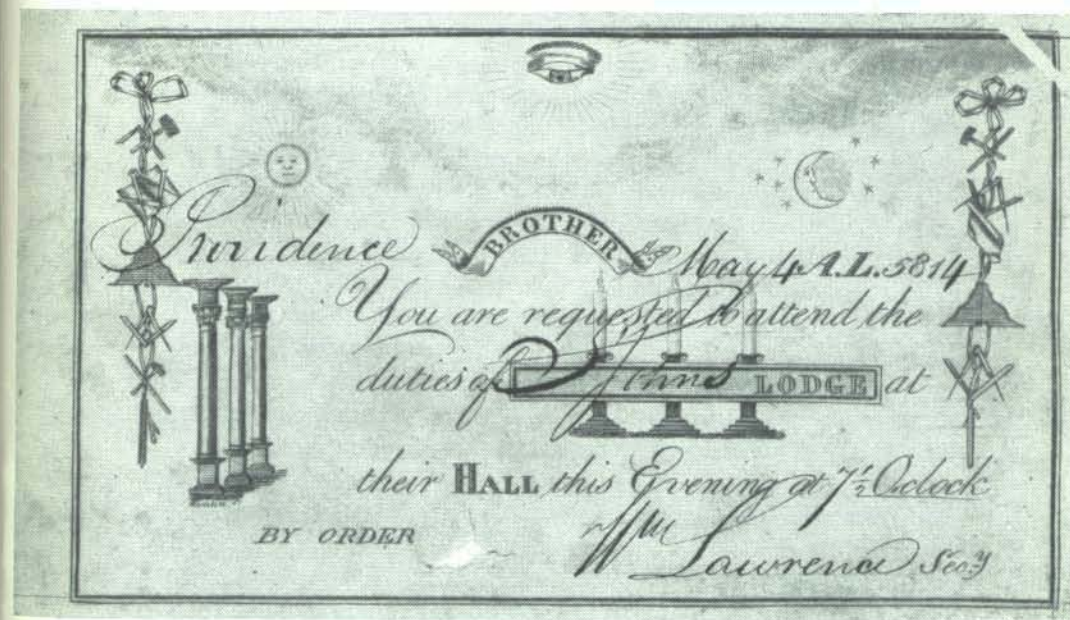 BROTHER
Providence May 4 A.L. 5814
You are requested to attend the
duties of St Johns LODGE at
their HALL this Evening at 7½ Oclock
BY ORDER
Wm
Lawrence Secy